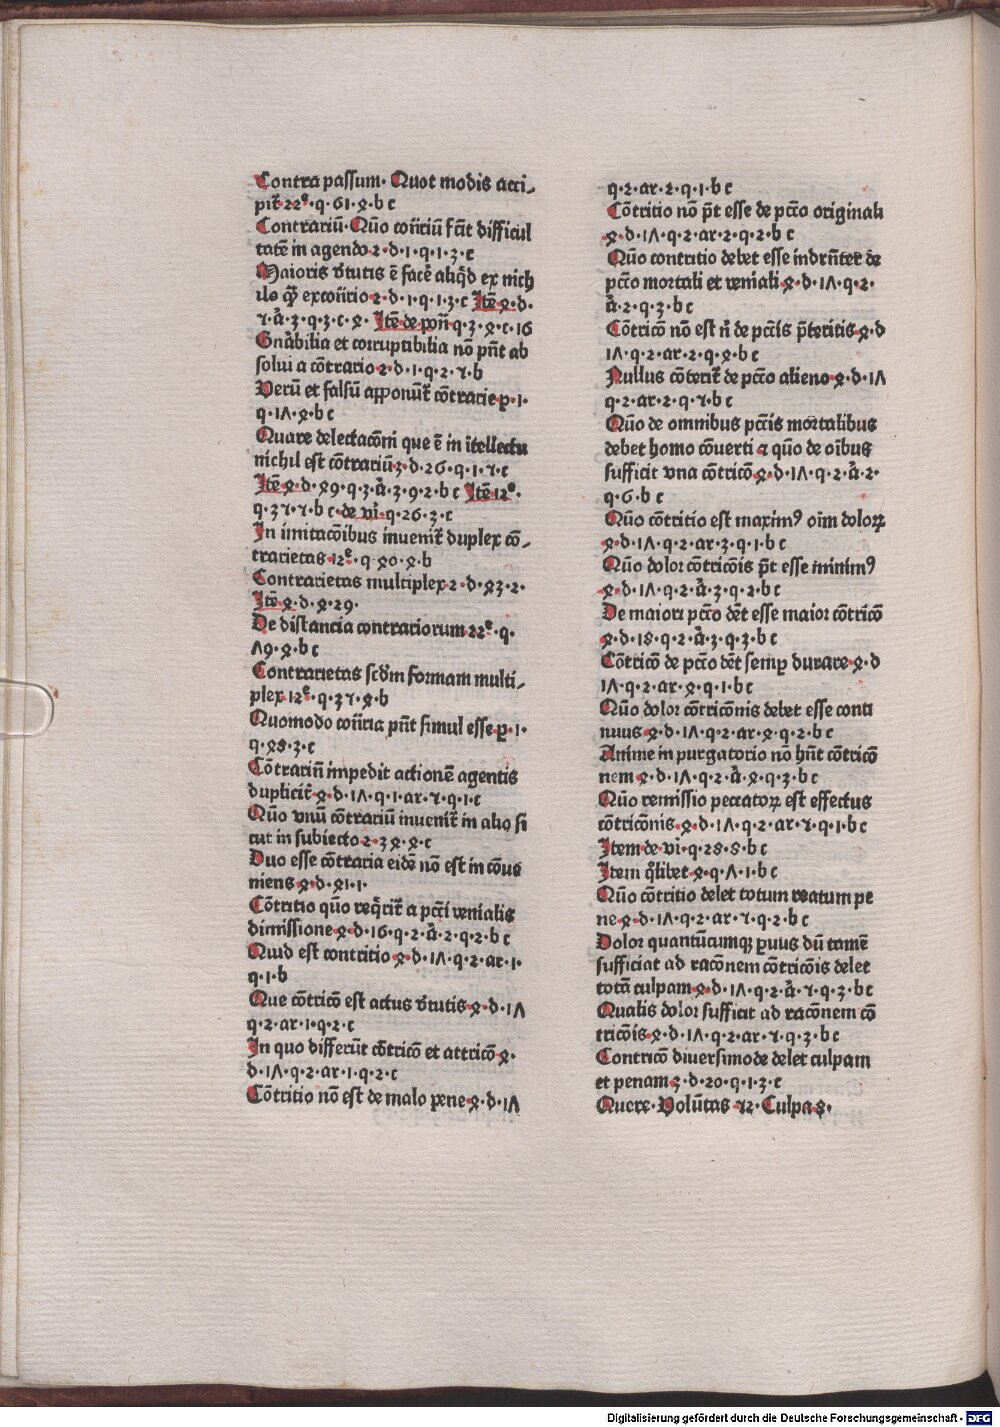 Contra passum· Quot modis acci⸗
pit̃ 22ᵉ·q·61·4·b c
Contrariũ·Quo cõñriũ fcĩt difficul
tatẽ in agendo·2·d·1·q·1·3·c
Maioris ṽtutis ẽ facẽ aliq̃d ex nich
ilo q̃ꝫ ex cõñrio·2·d·1·q·1·3·c Itẽ 4·d·
5·ȧ·3·q·3·c·4· Itẽ de poñ·q·3·4·c·16
Gnãbilia et corruptibilia nõ pñt ab
solui a cõtrario·2·d·1·q·2·5·b
Verũ et falsũ apponũt̃ cõtrarie·p·1·
q·17·4·b c
Quare delectacõni que ẽ in ĩtellectu
nichil est cõtrariũ·3·d·26·q·1·5·c
Itẽ 4·d·49·q·3·ȧ·3·9·2·b c Itẽ 12ᵉ·
q·35·5·b c·de vi·q·26·3·c
In imitacõibus inuenit̃ duplex cõ⸗
trarietas·12ᵉ·q·40·4·b
Contrarietas multiplex·2·d·43·2·
Itẽ 4·d·4·29·
De distancia contrariorum·22ᵉ·q·
79·4·b c
Contrarietas scd̃m formam multi⸗
plex·12ᵉ·q·35·4·b
Quomodo cõñria pñt simul esse·p·1·
q·48·3·c
Cõtrariũ impedit actionẽ agentis
duplicit̃·4·d·17·q·1·ar·5·q·1·c
Quo vnũ cõtrariũ inuenit̃ in alio si
cut in subiecto·2·34·4·c
Duo esse cõtraria eidẽ nõ est in cõue
niens·4·d·41·1·
Cõtritio quo req̃rit̃ a pcc̃i venialis
dimissione·4·d·16·q·2·ȧ·2·q·2·b c
Quid est contritio·4·d·17·q·2·ar·1·
q·1·b
Que cõtricõ est actus ṽtutis·4·d·17
q·2·ar·1·q·2·c
In quo differũt cõtricõ et attricõ·4·
d·17·q·2·ar·1·q·2·c
Cõtritio nõ est de malo pene·4·d·17
q·2·ar·2·q·1·b c
Cõtritio nõ p̃t esse de pcc̃o originali
4·d·17·q·2·ar·2·q·2·b c
Quo contritio debet esse indrñter̃ de
pcc̃o mortali et veniali·4·d·17·q·2·
ȧ·2·q·3·b c
Cõtricõ nõ est ñ de pcc̃is p̃teritis·4·d
17·q·2·ar·2·q·4·b c
Nullus cõterit̃ de pcc̃o alieno·4·d·17
q·2·ar·2·q·5·b c
Quo de omnibus pcc̃is mortalibus
debet homo cõuerti ⁊ quo de oĩbus
sufficit vna cõtricõ·4·d·17·q·2·ȧ·2·
q·6·b c
Quo cõtritio est maximꝰ oĩm dolorꝝ
4·d·17·q·2·ar·3·q·1·b c
Quo dolor cõtricõis p̃t esse minimꝰ
4·d·17·q·2·ȧ·3·q·2·b c
De maiori pcc̃o dẽt esse maior cõtricõ
4·d·18·q·2·ȧ·3·q·3·b c
Cõtricõ de pcc̃o dẽt semꝑ durare·4·d
17·q·2·ar·4·q·1·b c
Quo dolor cõtricõnis debet esse conti
nuus·4·d·17·q·2·ar·4·q·2·b c
Anime in purgatorio nõ hñt cõtricõ
nem·4·d·17·q·2·ȧ·4·q·3·b c
Quo remissio peccatorꝝ est effectus
cõtricõnis·4·d·17·q·2·ar·5·q·1·b c
Item de vi·q·28·8·b c
Item q̃libet·4·q·7·1·b c
Quo cõtritio delet totum reatum pe
ne·4·d·17·q·2·ar·5·q·2·b c
Dolor quantũcumqꝫ ꝑuus dũ tamẽ
sufficiat ad racõnem cõtricõis delet
totã culpam·4·d·17·q·2·ȧ·5·q·3·b c
Qualis dolor sufficit ad racõnem cõ
tricõis·4·d·17·q·2·ar·5·q·3·b c
Contricõ diuersimode delet culpam
et penam·3·d·20·q·1·3·c
Quere·Volũtas·52·Culpa·8·
Digitalisierung gefördert durch die Deutsche Forschungsgemeinschaft - DFG